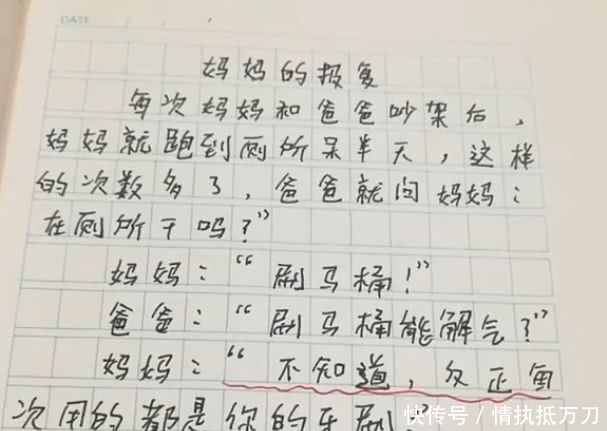 DATE
妈妈的报复
每次妈妈和爸爸吵架后,
妈妈就跑到厕所呆半天,这样
的次数多了,爸爸就问妈妈:
在厕所干吗?”
妈妈:“刷马桶!”
爸爸:“刷马桶能解气?”
妈妈:“不知道,反正每
次用的都是你的牙刷?”
快传号/情执抵万刀